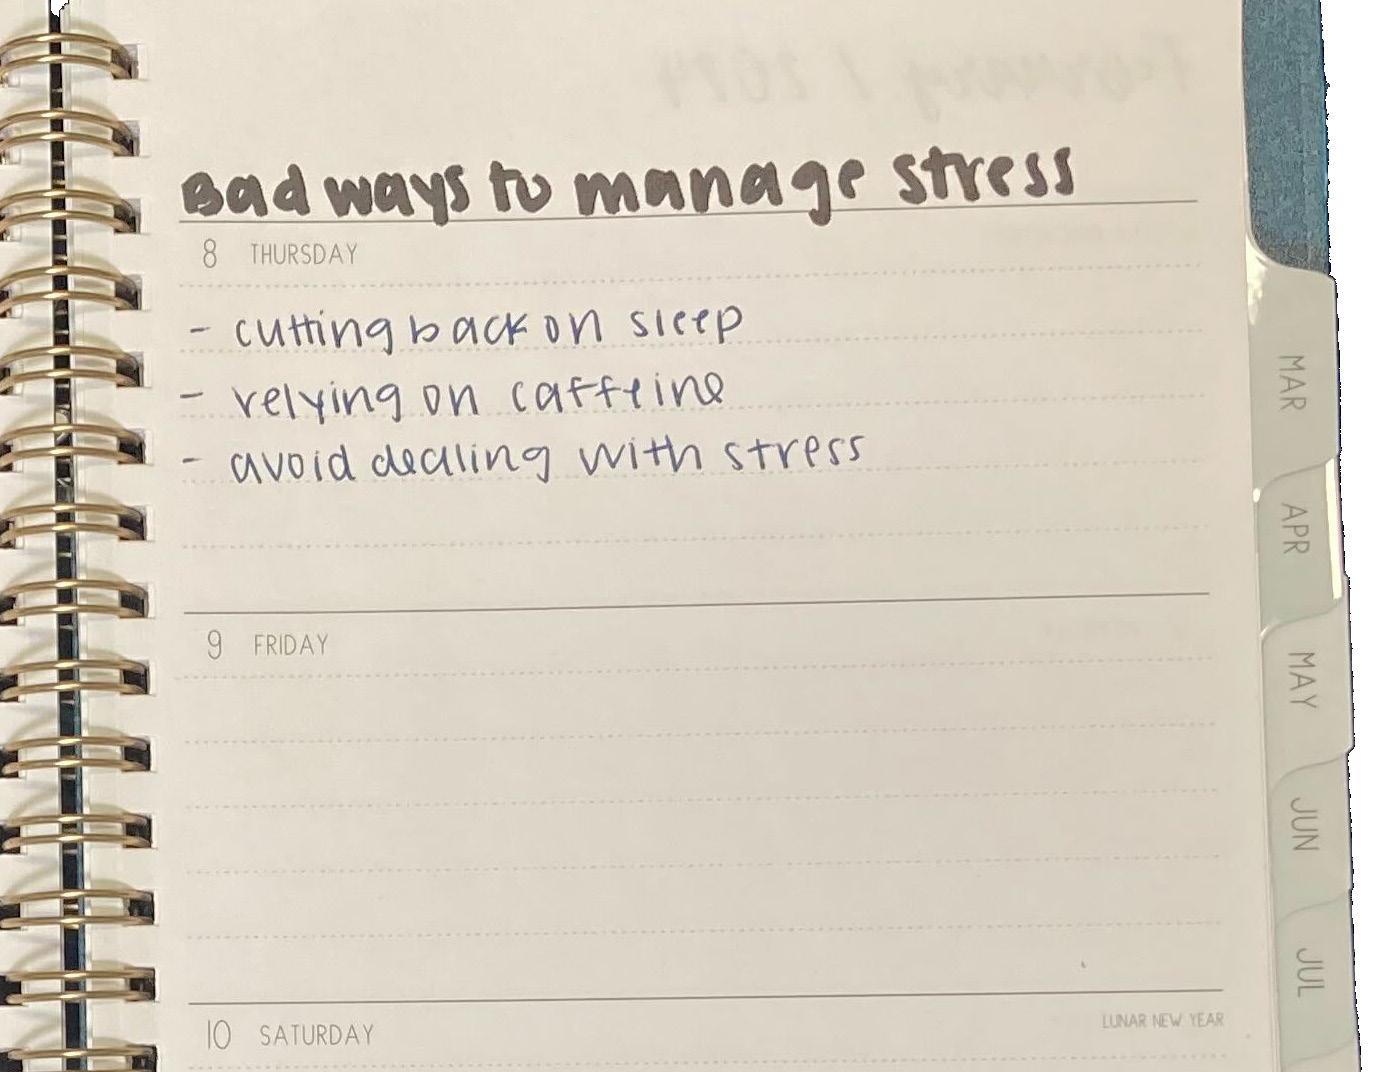 Bad ways to manage stress
8 THURSDAY
- cutting back on sleep
- relying on caffeine
- avoid dealing with stress
9 FRIDAY
10 SATURDAY
LUNAR NEW YEAR
MAR
APR
MAY
JUN
JUL